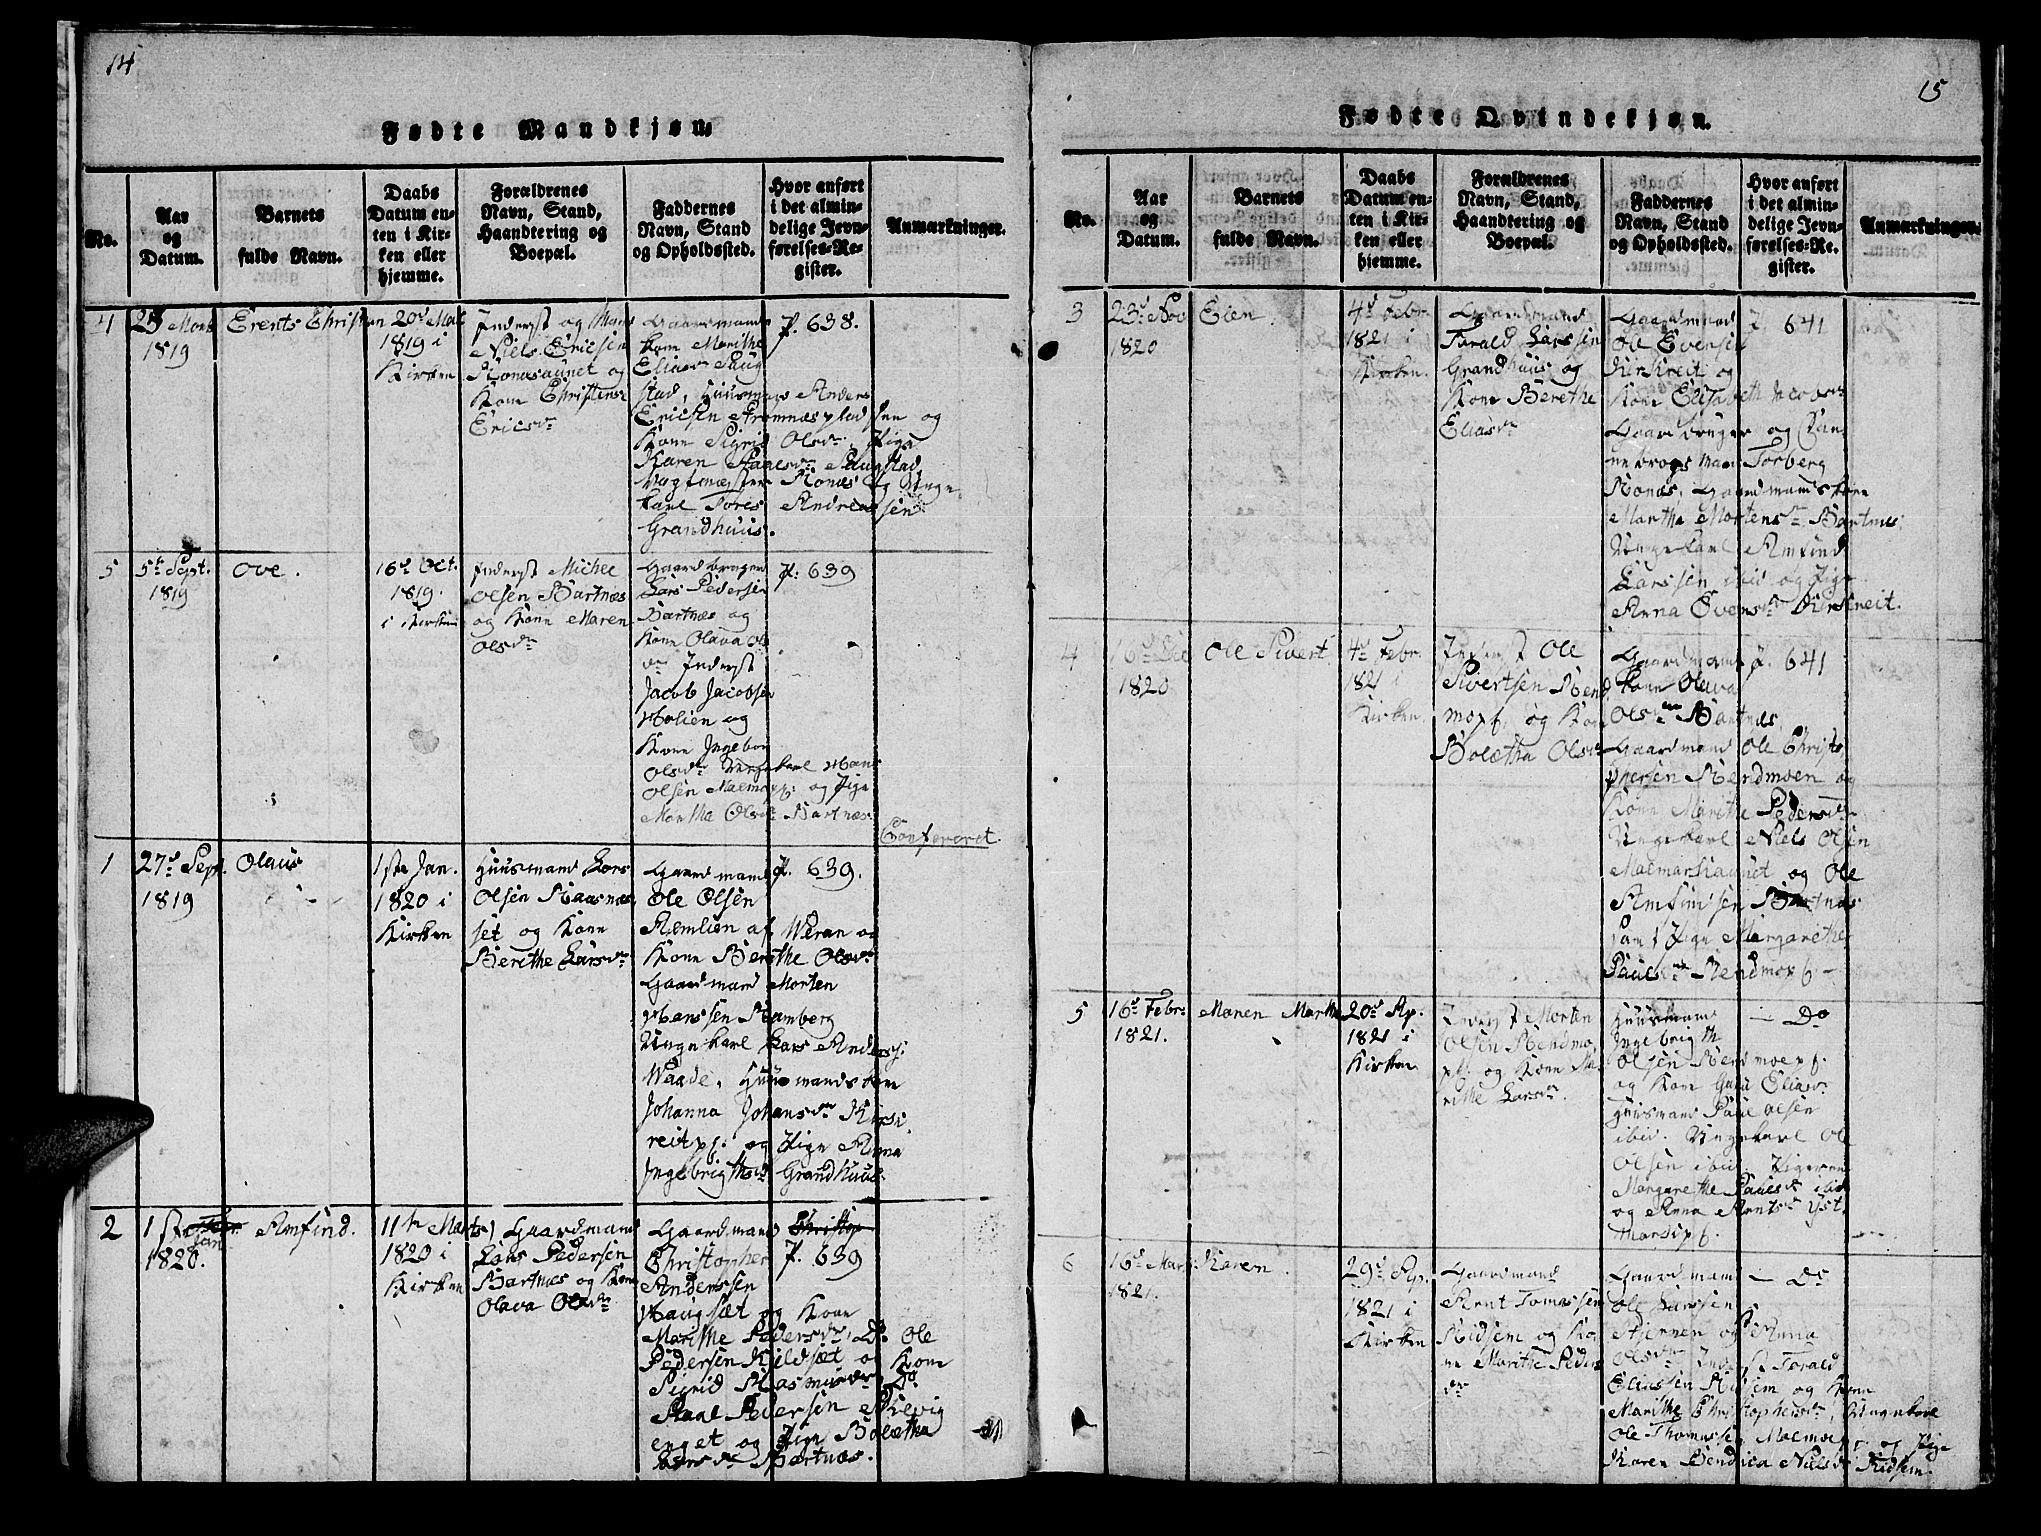 14
Fødte Mandkjøn.
No.
Aar
og
Datum.
Barnets
fulde Navn.
Daabs
Datum en-
ten i Kir-
ken eller
hjemme.
Forældrenes
Navn, Stand,
Haandtering og
Boepæl.
Faddernes
Navn, Stand
og Opholdssted.
Hvor anført
i det almin-
delige Jevn-
førelses-Re-
gister.
Anmarkninger.
4
25 Marts
1819
Erents Christian
20d Mai
1819 i
Kirken
Inderst og
Niels Ericsen
Ronasaunet og
Kone Christense
Ericsdr
Gaardmands
kone Marithe
Eliasdr Saug
stad, Huusmands Anders
Ericsen Strømnæsplad sen og
Kone Sigrid Olsdr. Pige
Karen Paulsdr Saugstad
Vagtmæster Ronæs og Unge
karl Tores Andreassen
Grandhuus.
P. 638.
5
5te Sept.
1819
Ove.
16d Oct.
1819.
i Kirken
Inderst Michel
Olsen Bartnæs
og Kone Maren
Olsdr
Gaardbruger
Lars Pedersen
Bartnæs og
Kone Olava Ols
dr Inderst
Jacob Jacobsen
Holien og
Kone Ingebor
Olsdr Ungekarl Hans
Olsen Malmopl: og Pige
Marithe Olsdr Bartnæs
P. 639
Confereret.
1
27d Sept.
1819
Olaus
1ste Jan.
1820 i
Kirken
Huusmand Lars
Olsen Raasnæs
set og Kone
Berethe Larsdr
Gaardmand
Ole Olsen
Remlien af Weran og
Kone Berethe Olsdr
Gaardmand Morten
Hanssen Ramberg
Ungekarl Lars Anders:
Waade. Huusmandskone
Johanna Johansdr Kirk
reitpl: og Pige Anna
Ingebrigthsd Grandhuus.
P. 639.
2
1ste
Jan
1820.
Arnfind.
11te Marts
1820 i
Kirken
Gaardmand
Lars Pedersen
Bartnæs og Kone
Olava Olsdr
Gaardmand
Christopher
Anderssen
Haugsæt og Kone
Marithe Pedersdr. Do Ole
Pedersen Kildsæt og Kone
Sigrid Rasmusdr Do
Paul Pedersen Skevig
enget og Pige Bolætha
Larsdr Bartnæs.
Christop
P. 639
15
Fødte Qvindekjøn.
No.
Aar
og
Datum.
Barnets
fulde Navn.
Daabs
Datum en-
ten i Kir-
ken eller
hjemme.
Forældrenes
Navn, Stand,
Haandtering og
Boepæl.
Faddernes
Navn, Stand
og Opholdssted.
Hvor anført
i det almin-
delige Jevn-
førelses-Re-
gister.
Anmarkninger.
3
23d Nov
1820
Elen.
4d Febr.
1821 i
Kirken.
Gaardmand
Torald Larssen
Grandhuus og
Kone Berethe
Eliasdr
Gaardmand
Ole Evensen
Kirkreit og
Kone Elisabeth Jacobsdr
Gaardbruger og Dan
nebrogs Mand Torberg
Ronæs, Gaardmandskone
Martha Mortensdr Bartnæs
Ungekarl Arnfind
Larssen ibid og Pige
Anna Ovensdr Kirkreit.
P. 641
4
16d Dec
1820
Ole Sivert
4d Febr.
1821 i
Kirken.
Inderst Ole
Sivertsen Rend
mopl. og Kone
Bolætha Olsdr
Gaardmands
kone Olava
Olsdr Bartnæs
Gaardmand Ole Christo
phersen Rendmoen og
Kone Marithe Pedersdr
Ungekarl Niels Olsen
Malmarkaunet og Ole
Arnfindsen Bartnæs
samt Pige Margarethe
Paulsdr Rendmopl –
P. 641
5
16d Febr.
1821.
Maren Marthe
20d Ap.
1821 i
Kirken
Inderst Morten
Olsen Rendmo
pl. og Kone Ma
rithe Larsdr.
Huusmand
Ingebrigth
Olsen Rendmoepl.
og Kone Guru Eliasdr
Huusmand Paul Olsen
ibid. Ungekarl Ole
Olsen ibid. Pigerne
Margarethe Paulsdr ibid
og Anna Arntsdr Yst
Marsipl.
– Do
6
16d Marts
1821.
Karen.
29d Ap.
1821 i
Kirken
Gaardmand
Arnt Tomassen
Kidsem og Ko
ne Marithe Peders
dr
Gaardmand
Ole Larssen
Stjernen og Anna
Olsdr, Inderst Torald
Eliassen Kidsem og Kone
Marithe Christophersdr, Ungekarl
Ole Thomassen Malmoe pl. og Pige
Karen Bendica Nielsdr Kidsem.
– Do